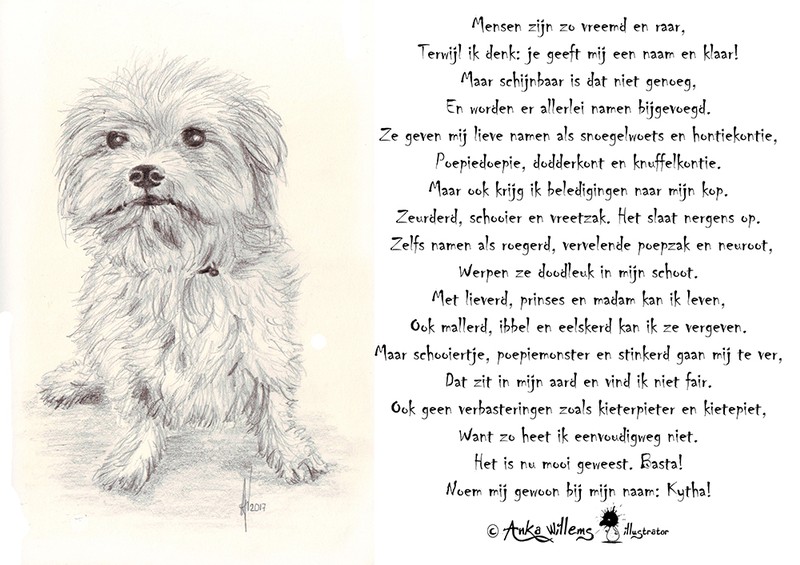 Mensen zijn zo vreemd en raar,
Terwijl ik denk: je geeft mij een naam en klaar!
Maar schijnbaar is dat niet genoeg,
En worden er allerlei namen bijgevoegd.
Ze geven mij lieve namen als snoegelwoets en hontiekontie,
Poepiedoepie, dodderkont en knuffelkontie.
Maar ook krijg ik beledigingen naar mijn kop.
Zeurderd, schooier en vreetzak. Het slaat nergens op.
Zelfs namen als roegerd, vervelende poepzak en neuroot,
Werpen ze doodleuk in mijn schoot.
Met lieverd, prinses en madam kan ik leven,
Ook mallerd, ibbel en eelskerd kan ik ze vergeven.
Maar schooiertje, poepiemonster en stinkerd gaan mij te ver,
Dat zit in mijn aard en vind ik niet fair.
Ook geen verbasteringen zoals kieterpieter en kietepiet,
Want zo heet ik eenvoudigweg niet.
Het is nu mooi geweest. Basta!
Noem mij gewoon bij mijn naam: Kytha!
© Anka Willems illustrator
2017